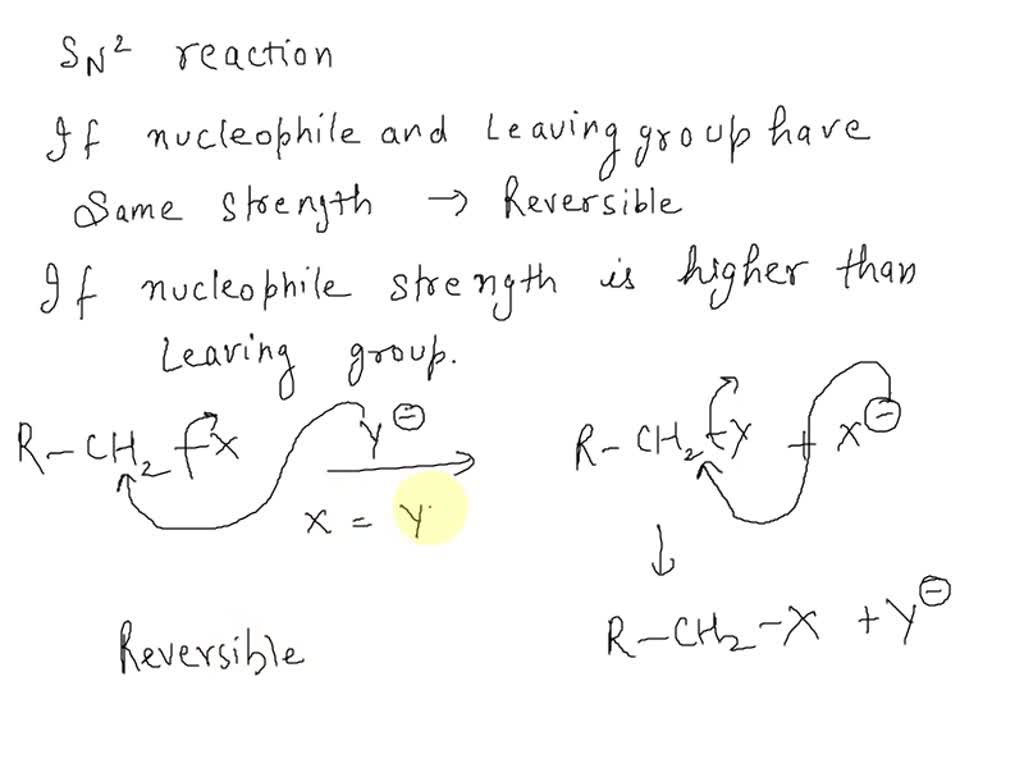 SN2 reaction
If nucleophile and Leaving group have
Same strength → Reversible
If nucleophile strength is higher than
Leaving group.
R-CH2-X Y⊖ → R-CH2-Y + X⊖
X = Y
↓
R-CH2-X + Y⊖
Reversible